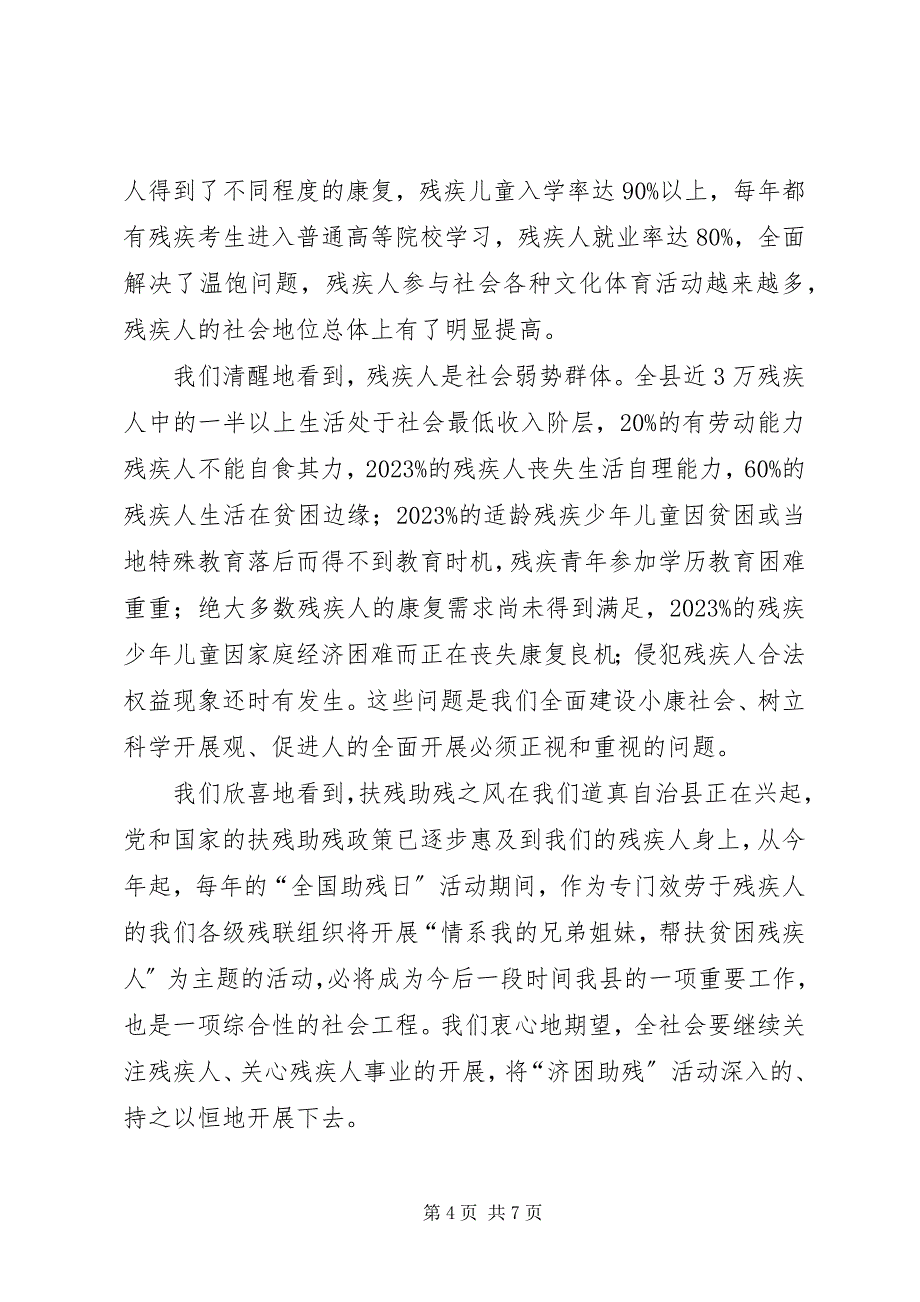 人得到了不同程度的康复，残疾儿童入学率达 90%以上，每年都
有残疾考生进入普通高等院校学习，残疾人就业率达 80%，全面
解决了温饱问题，残疾人参与社会各种文化体育活动越来越多，
残疾人的社会地位总体上有了明显提高。
我们清醒地看到，残疾人是社会弱势群体。全县近 3 万残疾
人中的一半以上生活处于社会最低收入阶层，20%的有劳动能力
残疾人不能自食其力，2023%的残疾人丧失生活自理能力，60%的
残疾人生活在贫困边缘；2023%的适龄残疾少年儿童因贫困或当
地特殊教育落后而得不到教育时机，残疾青年参加学历教育困难
重重；绝大多数残疾人的康复需求尚未得到满足，2023%的残疾
少年儿童因家庭经济困难而正在丧失康复良机；侵犯残疾人合法
权益现象还时有发生。这些问题是我们全面建设小康社会、树立
科学开展观、促进人的全面开展必须正视和重视的问题。
我们欣喜地看到，扶残助残之风在我们道真自治县正在兴起，
党和国家的扶残助残政策已逐步惠及到我们的残疾人身上，从今
年起，每年的“全国助残日〞活动期间，作为专门效劳于残疾人
的我们各级残联组织将开展“情系我的兄弟姐妹，帮扶贫困残疾
人〞为主题的活动，必将成为今后一段时间我县的一项重要工作，
也是一项综合性的社会工程。我们衷心地期望，全社会要继续关
注残疾人、关心残疾人事业的开展，将“济困助残〞活动深入的、
持之以恒地开展下去。
第 4 页 共 7 页